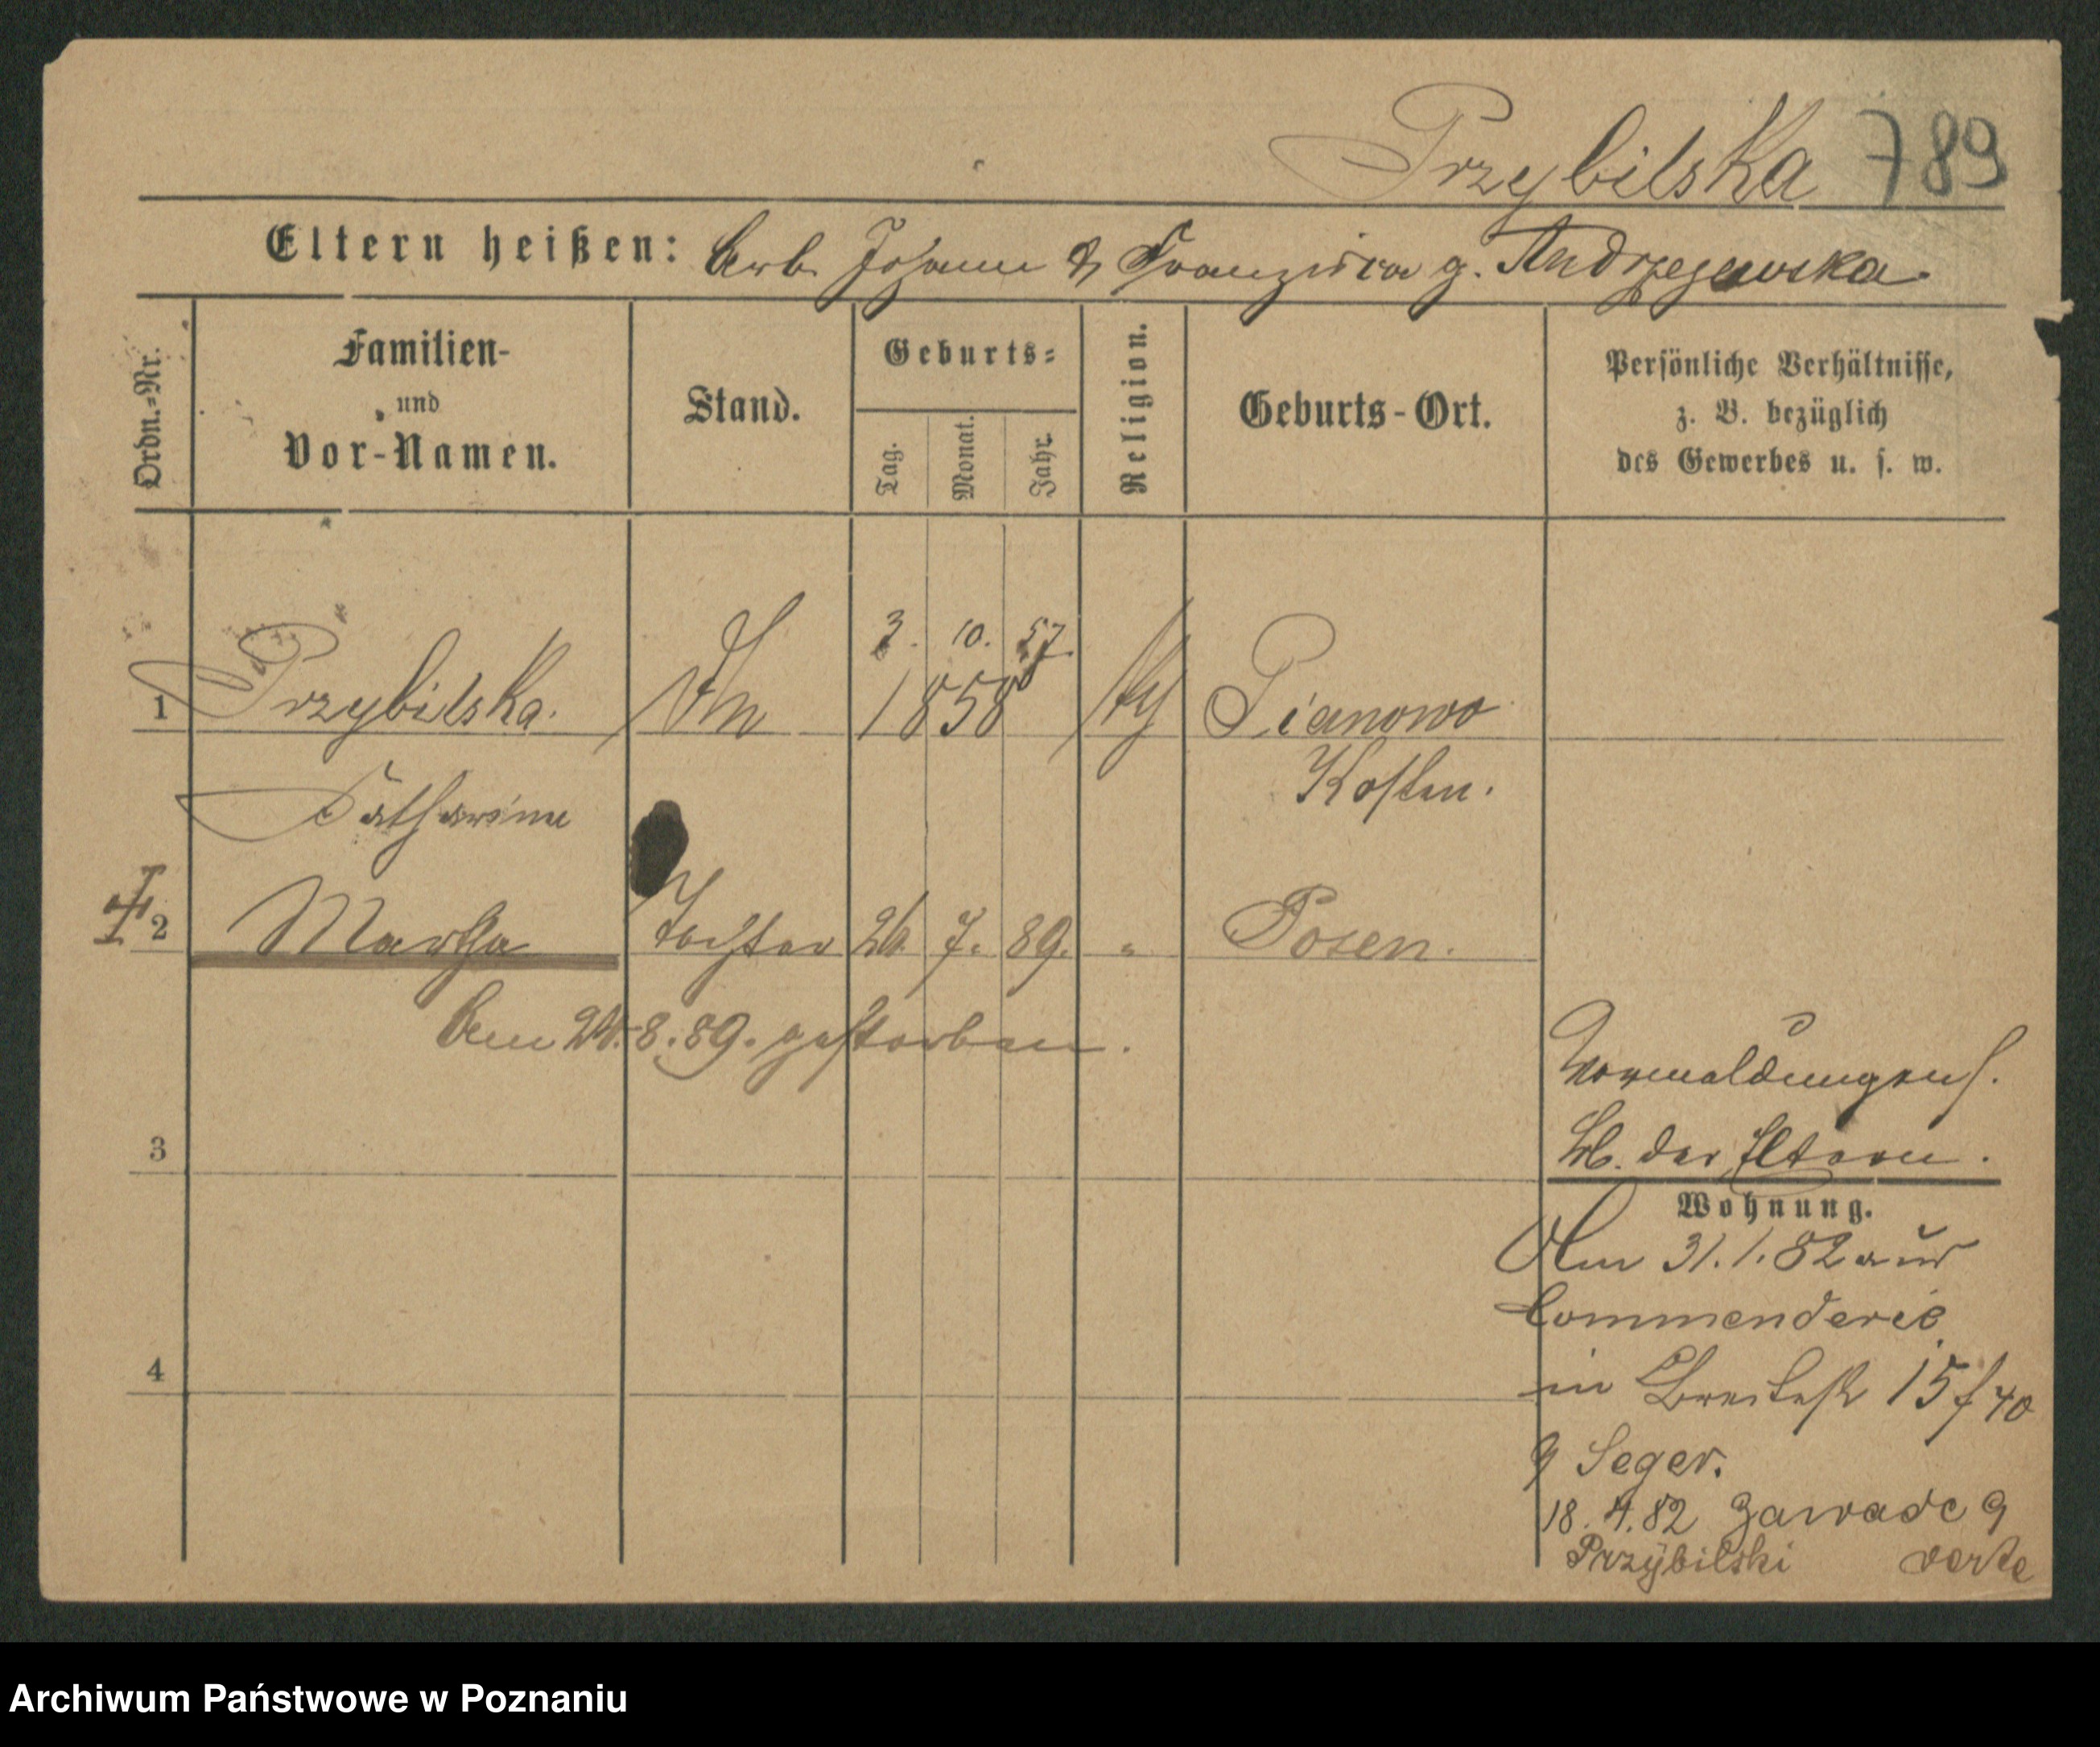 Przybilska 789
Eltern heißen: Arb. Johann & Franziska g. Andrzejewska
Ordn.-Nr.
Familien-
und
Vor-Namen.
Stand.
Geburts-
Tag. Monat. Jahr.
Religion.
Geburts-Ort.
Persönliche Verhältnisse,
z. B. bezüglich
des Gewerbes u. s. w.
3. 10. 57.
1 Przybilska. 1858 Pianowo
Catharina Kosten.
2 Martha Tochter 26. 7. 89. " Posen.
Am 24.8.89. gestorben.
3
der Eltern.
Wohnung.
Am 31.1.82 aus
Commenderie
4
in Breitestr 15 f 40
Seger.
18.4.82 Zawade 9
Przybilski verte
Archiwum Państwowe w Poznaniu